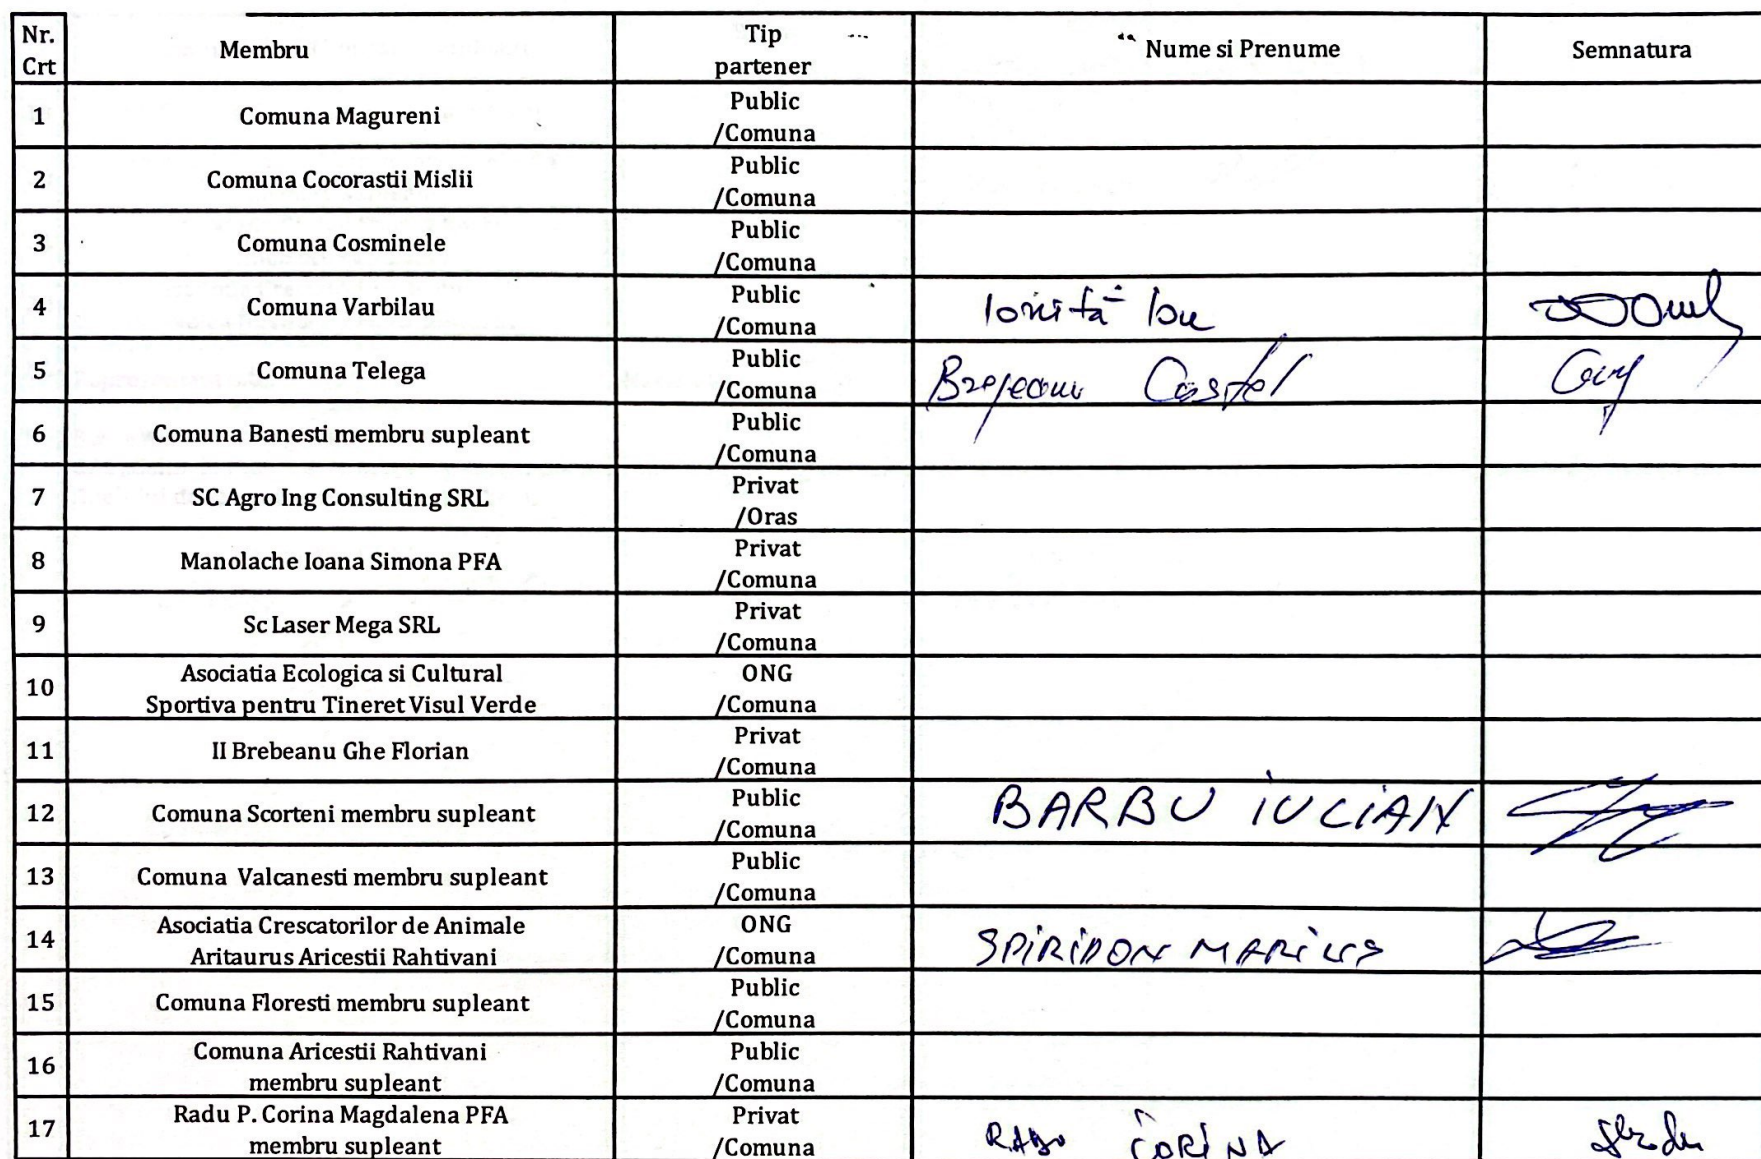 Nr. Crt Membru Tip partener Nume si Prenume Semnatura
1 Comuna Magureni Public /Comuna
2 Comuna Cocorastii Mislii Public /Comuna
3 Comuna Cosminele Public /Comuna
4 Comuna Varbilau Public /Comuna Ioniță Ion
5 Comuna Telega Public /Comuna Costel
6 Comuna Banesti membru supleant Public /Comuna
7 SC Agro Ing Consulting SRL Privat /Oras
8 Manolache Ioana Simona PFA Privat /Comuna
9 Sc Laser Mega SRL Privat /Comuna
10 Asociatia Ecologica si Cultural Sportiva pentru Tineret Visul Verde ONG /Comuna
11 II Brebeanu Ghe Florian Privat /Comuna
12 Comuna Scorteni membru supleant Public /Comuna BARBU IULIAN
13 Comuna Valcanesti membru supleant Public /Comuna
14 Asociatia Crescatorilor de Animale Aritaurus Aricestii Rahtivani ONG /Comuna SPIRIDON MARIUS
15 Comuna Floresti membru supleant Public /Comuna
16 Comuna Aricestii Rahtivani membru supleant Public /Comuna
17 Radu P. Corina Magdalena PFA membru supleant Privat /Comuna RADU CORINA